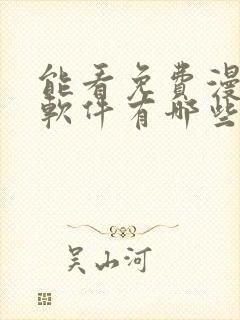 能看免費漫
軟件有哪些
吴山河